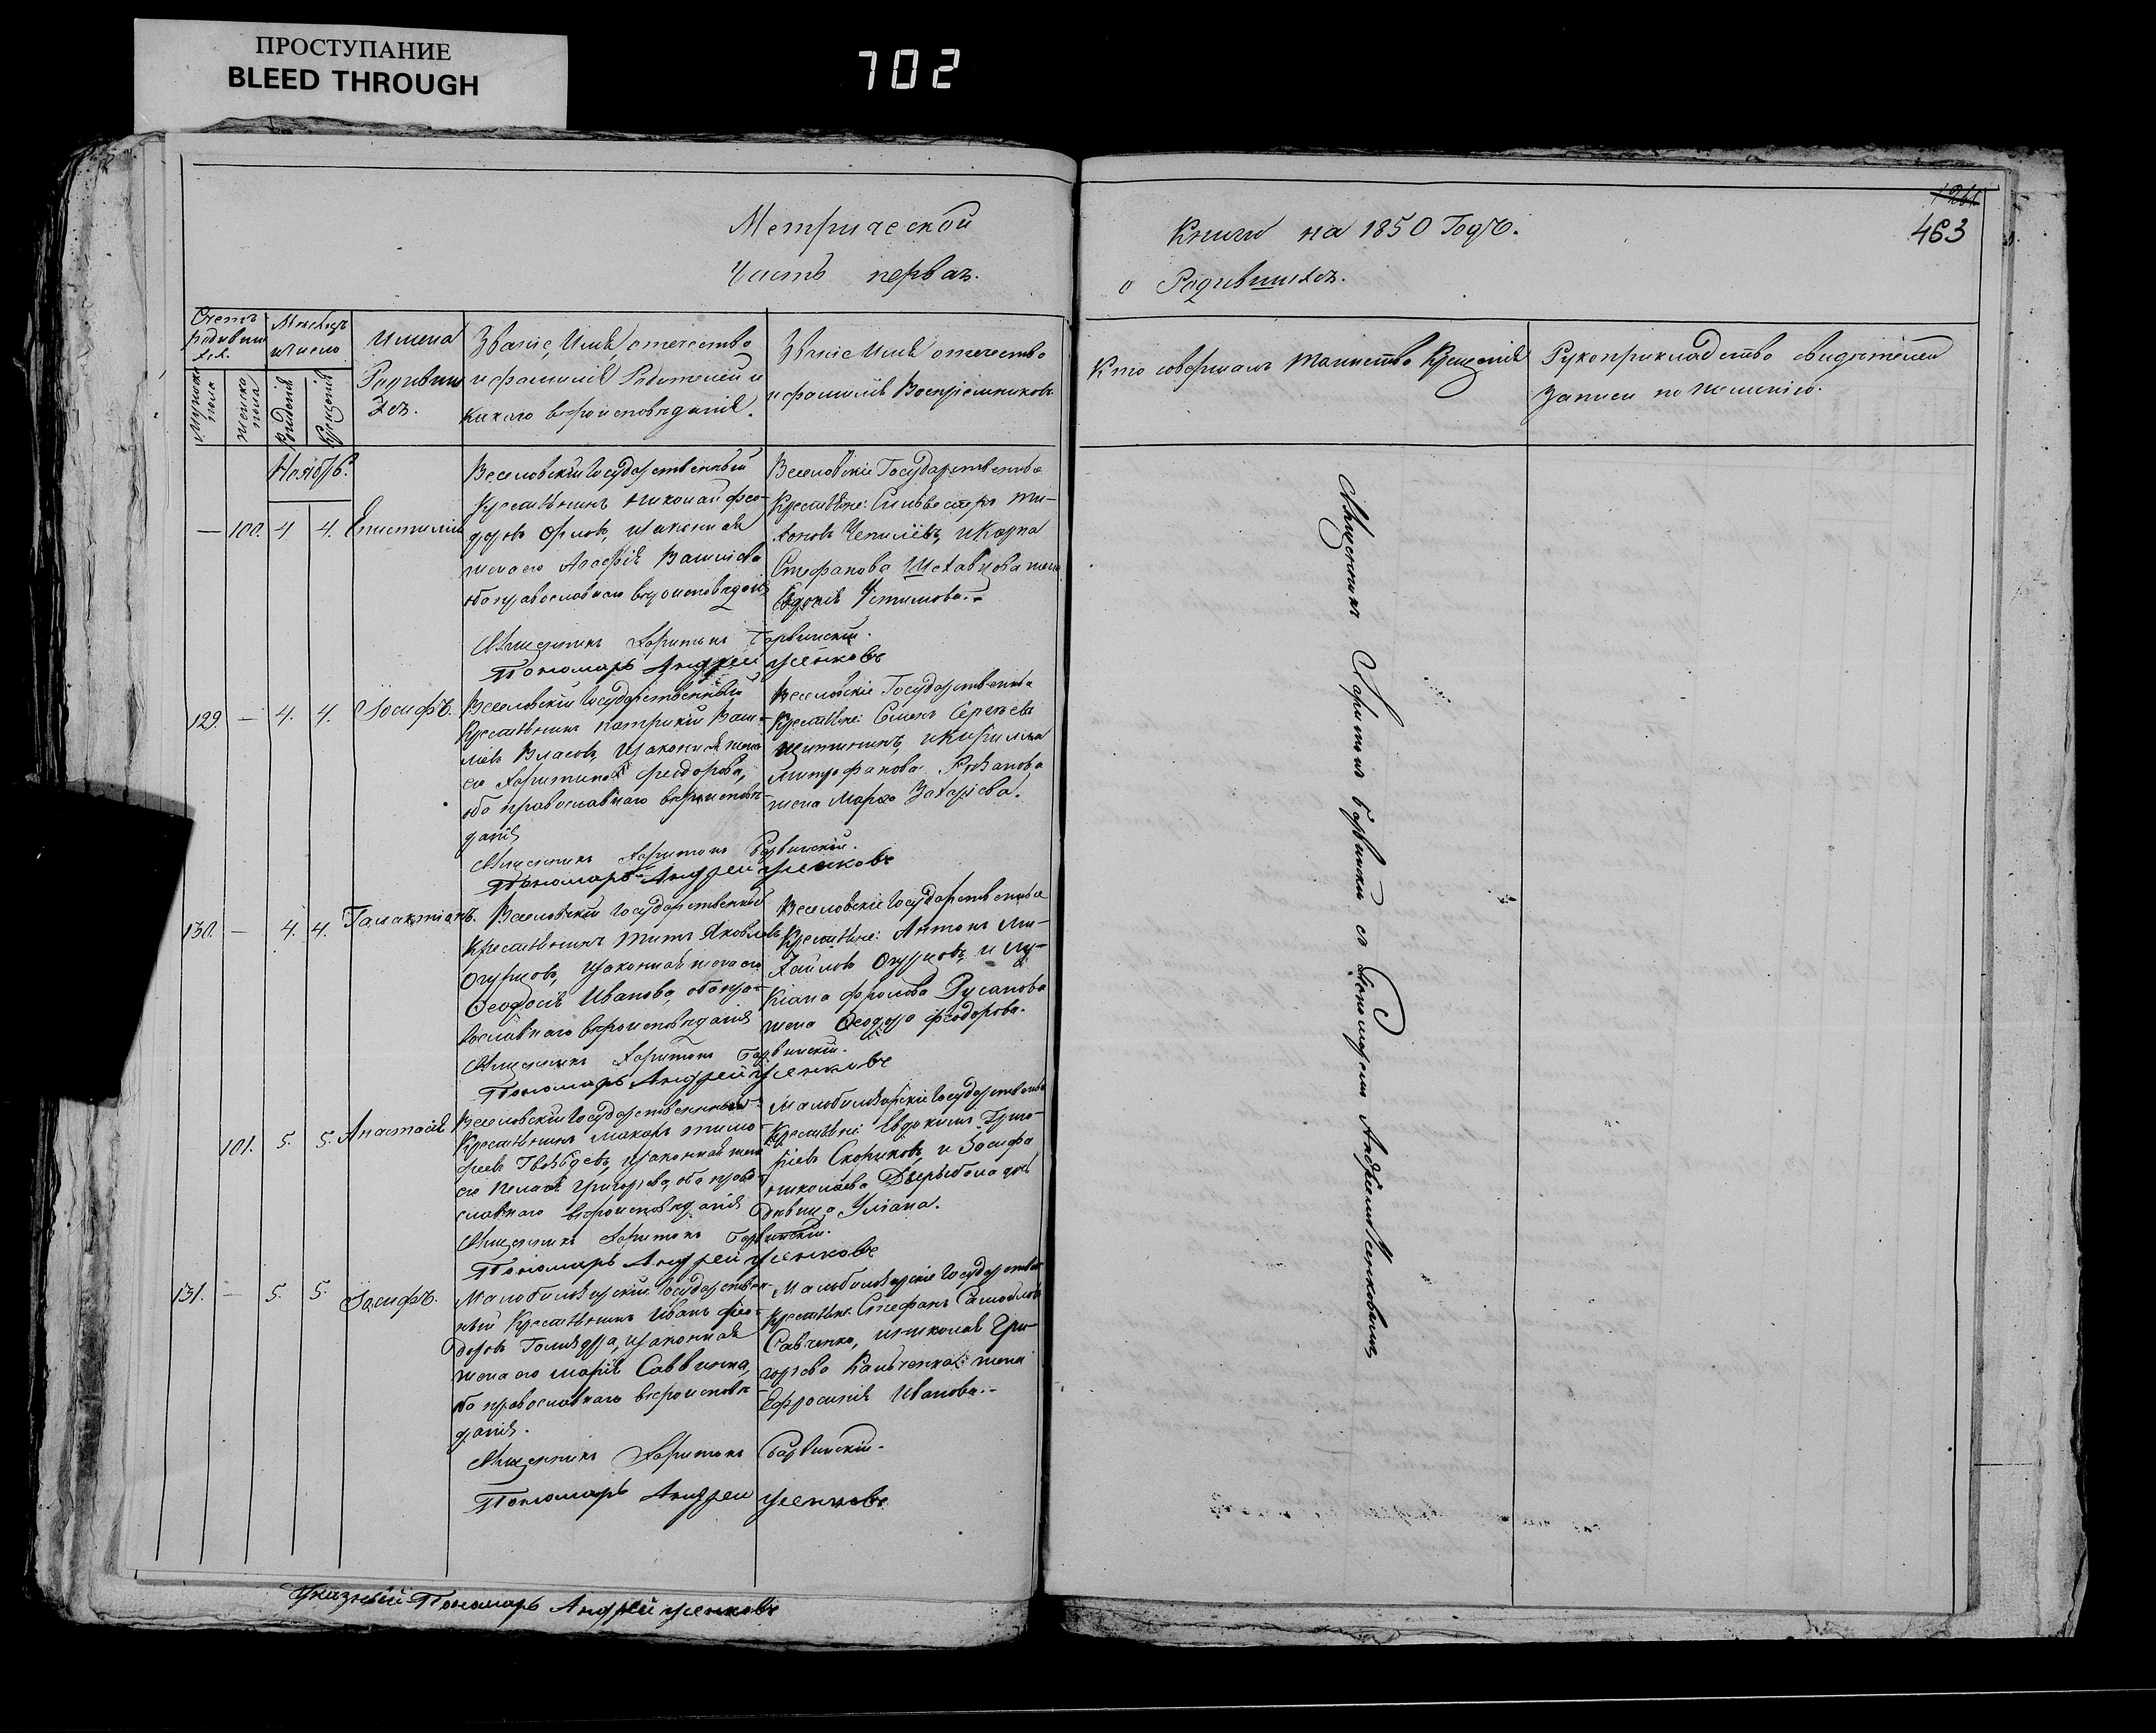 ПРОСТУПАНИЕ
BLEED THROUGH
702
Метрической
Часть первая.
Книги на 1850 Годъ.
о Родившихся.
1261
463
Счетъ родившихся
Мужеска пола
женска пола
Мѣсяцъ и число
Рожденія
Крещенія
Имена
Родивши
хся.
Званіе, Имя, отечество
и фамилія Родителей и
какого вѣроисповѣданія.
Званіе Имя отечество
и фамилія Воспріемниковъ
Кто совершалъ таинство Крещенія
Рукоприкладство свидѣтелей
записи по желанію.
Ноябрь.
— 100. 4 4. Епистимія
Веселовскій Государственный
Крестьянинъ Николай Фео-
доровъ Орловъ, и законная
жена его Агафія Василіева
оба православнаго вѣроисповѣданія
Веселовскіе Государственные
Крестьяне: Сильвестръ Ти-
хоновъ и Карпа
Стефанова жена
Евдокія Устинова.
Священникъ Харитонъ Барвинскій.
Пономарь Андрей Усенковъ
129. — 4. 4. Іосифъ.
Веселовскій Государственный
Крестьянинъ Патрикій Васи-
ліевъ Власовъ, и законная жена
его Харитина Феодорова,
оба православнаго вѣроисповѣ-
данія
Веселовскіе Государственные
Крестьяне: Семенъ Сергѣевъ
и Кирилла
Митрофанова Рязанова
жена Марѳа Захаріева.
Священникъ Харитонъ Барвинскій.
Пономарь Андрей Усенковъ
130. — 4. 4. Галактіонъ.
Веселовскій Государственный
Крестьянинъ Титъ Яковлевъ
Огурцовъ, и законная жена его
Ѳеодосія Иванова, оба пра-
вославнаго вѣроисповѣданія
Веселовскіе Государственные
Крестьяне: Антонъ Ми-
хайловъ Огурцовъ, и Лу-
кіана Фролова Русанова
жена Ѳеодора Феодорова.
Священникъ Харитонъ Барвинскій.
Пономарь Андрей Усенковъ
101. 5. 5. Анастасія
Веселовскій Государственный
Крестьянинъ Макаръ Тимо-
феевъ Гвоздевъ, и законная жена
его Пелагія Григорьева, оба право-
славнаго вѣроисповѣданія
Малобелозерскіе Государственные
Крестьяне: Евдокимъ Григо-
ріевъ Скориковъ, и Іосифа
Николаева дочь
дѣвица Уліана.
Священникъ Харитонъ Барвинскій.
Пономарь Андрей Усенковъ
131. — 5. 5. Іосифъ.
Малобелозерскій Государствен-
ный Крестьянинъ Иванъ Фео-
доровъ и законная
жена его Марія Саввина,
оба православнаго вѣроисповѣ-
данія.
Малобелозерскіе Государствен
Крестьяне: Стефанъ Самойловъ
Савченко, и Николая Гри-
горьева жена
Ефросинія Иванова.
Священникъ Харитонъ Барвинскій.
Пономарь Андрей Усенковъ
Указный Пономарь Андрей Усенковъ
Священникъ Харитонъ Барвинскій съ Пономаремъ Андреемъ Усенковымъ